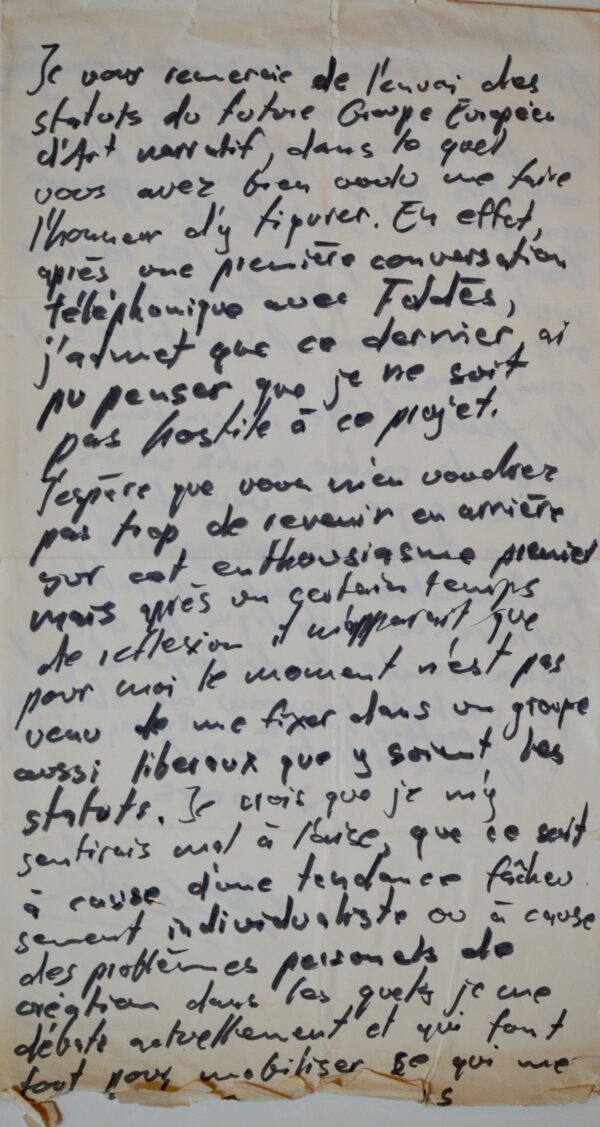 Je vous remercie de l'envoi des
statuts du future Groupe Européen
d'Art narratif, dans le quel
vous avez bien voulu me faire
l'honneur d'y figurer. En effet,
après une première conversation
téléphonique avec Foldès,
j'admet que ce dernier, ai
pu penser que je ne soit
pas hostile à ce projet.
J'espère que vous m'en voudrez
pas trop de revenir en arrière
sur cet enthousiasme premier
mais après un certain temps
de reflexion il m'apparait que
pour moi le moment n'est pas
venu de me fixer dans un groupe
aussi liberaux que y soient les
statuts. Je crois que je m'y
sentirais mal à l'aise, que ce soit
à cause d'une tendance fâcheu
sement individualiste ou à cause
des problèmes personels de
création dans les quels je me
débats actuellement et qui font
tout pour mobiliser se qui me